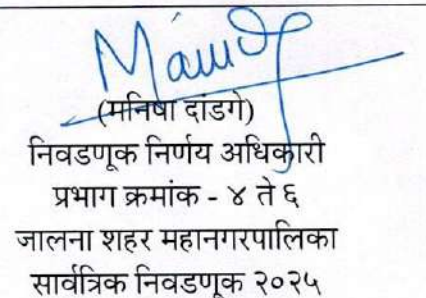 (मनिषा दांडगे)
निवडणूक निर्णय अधिकारी
प्रभाग क्रमांक - ४ ते ६
जालना शहर महानगरपालिका
सार्वत्रिक निवडणूक २०२५